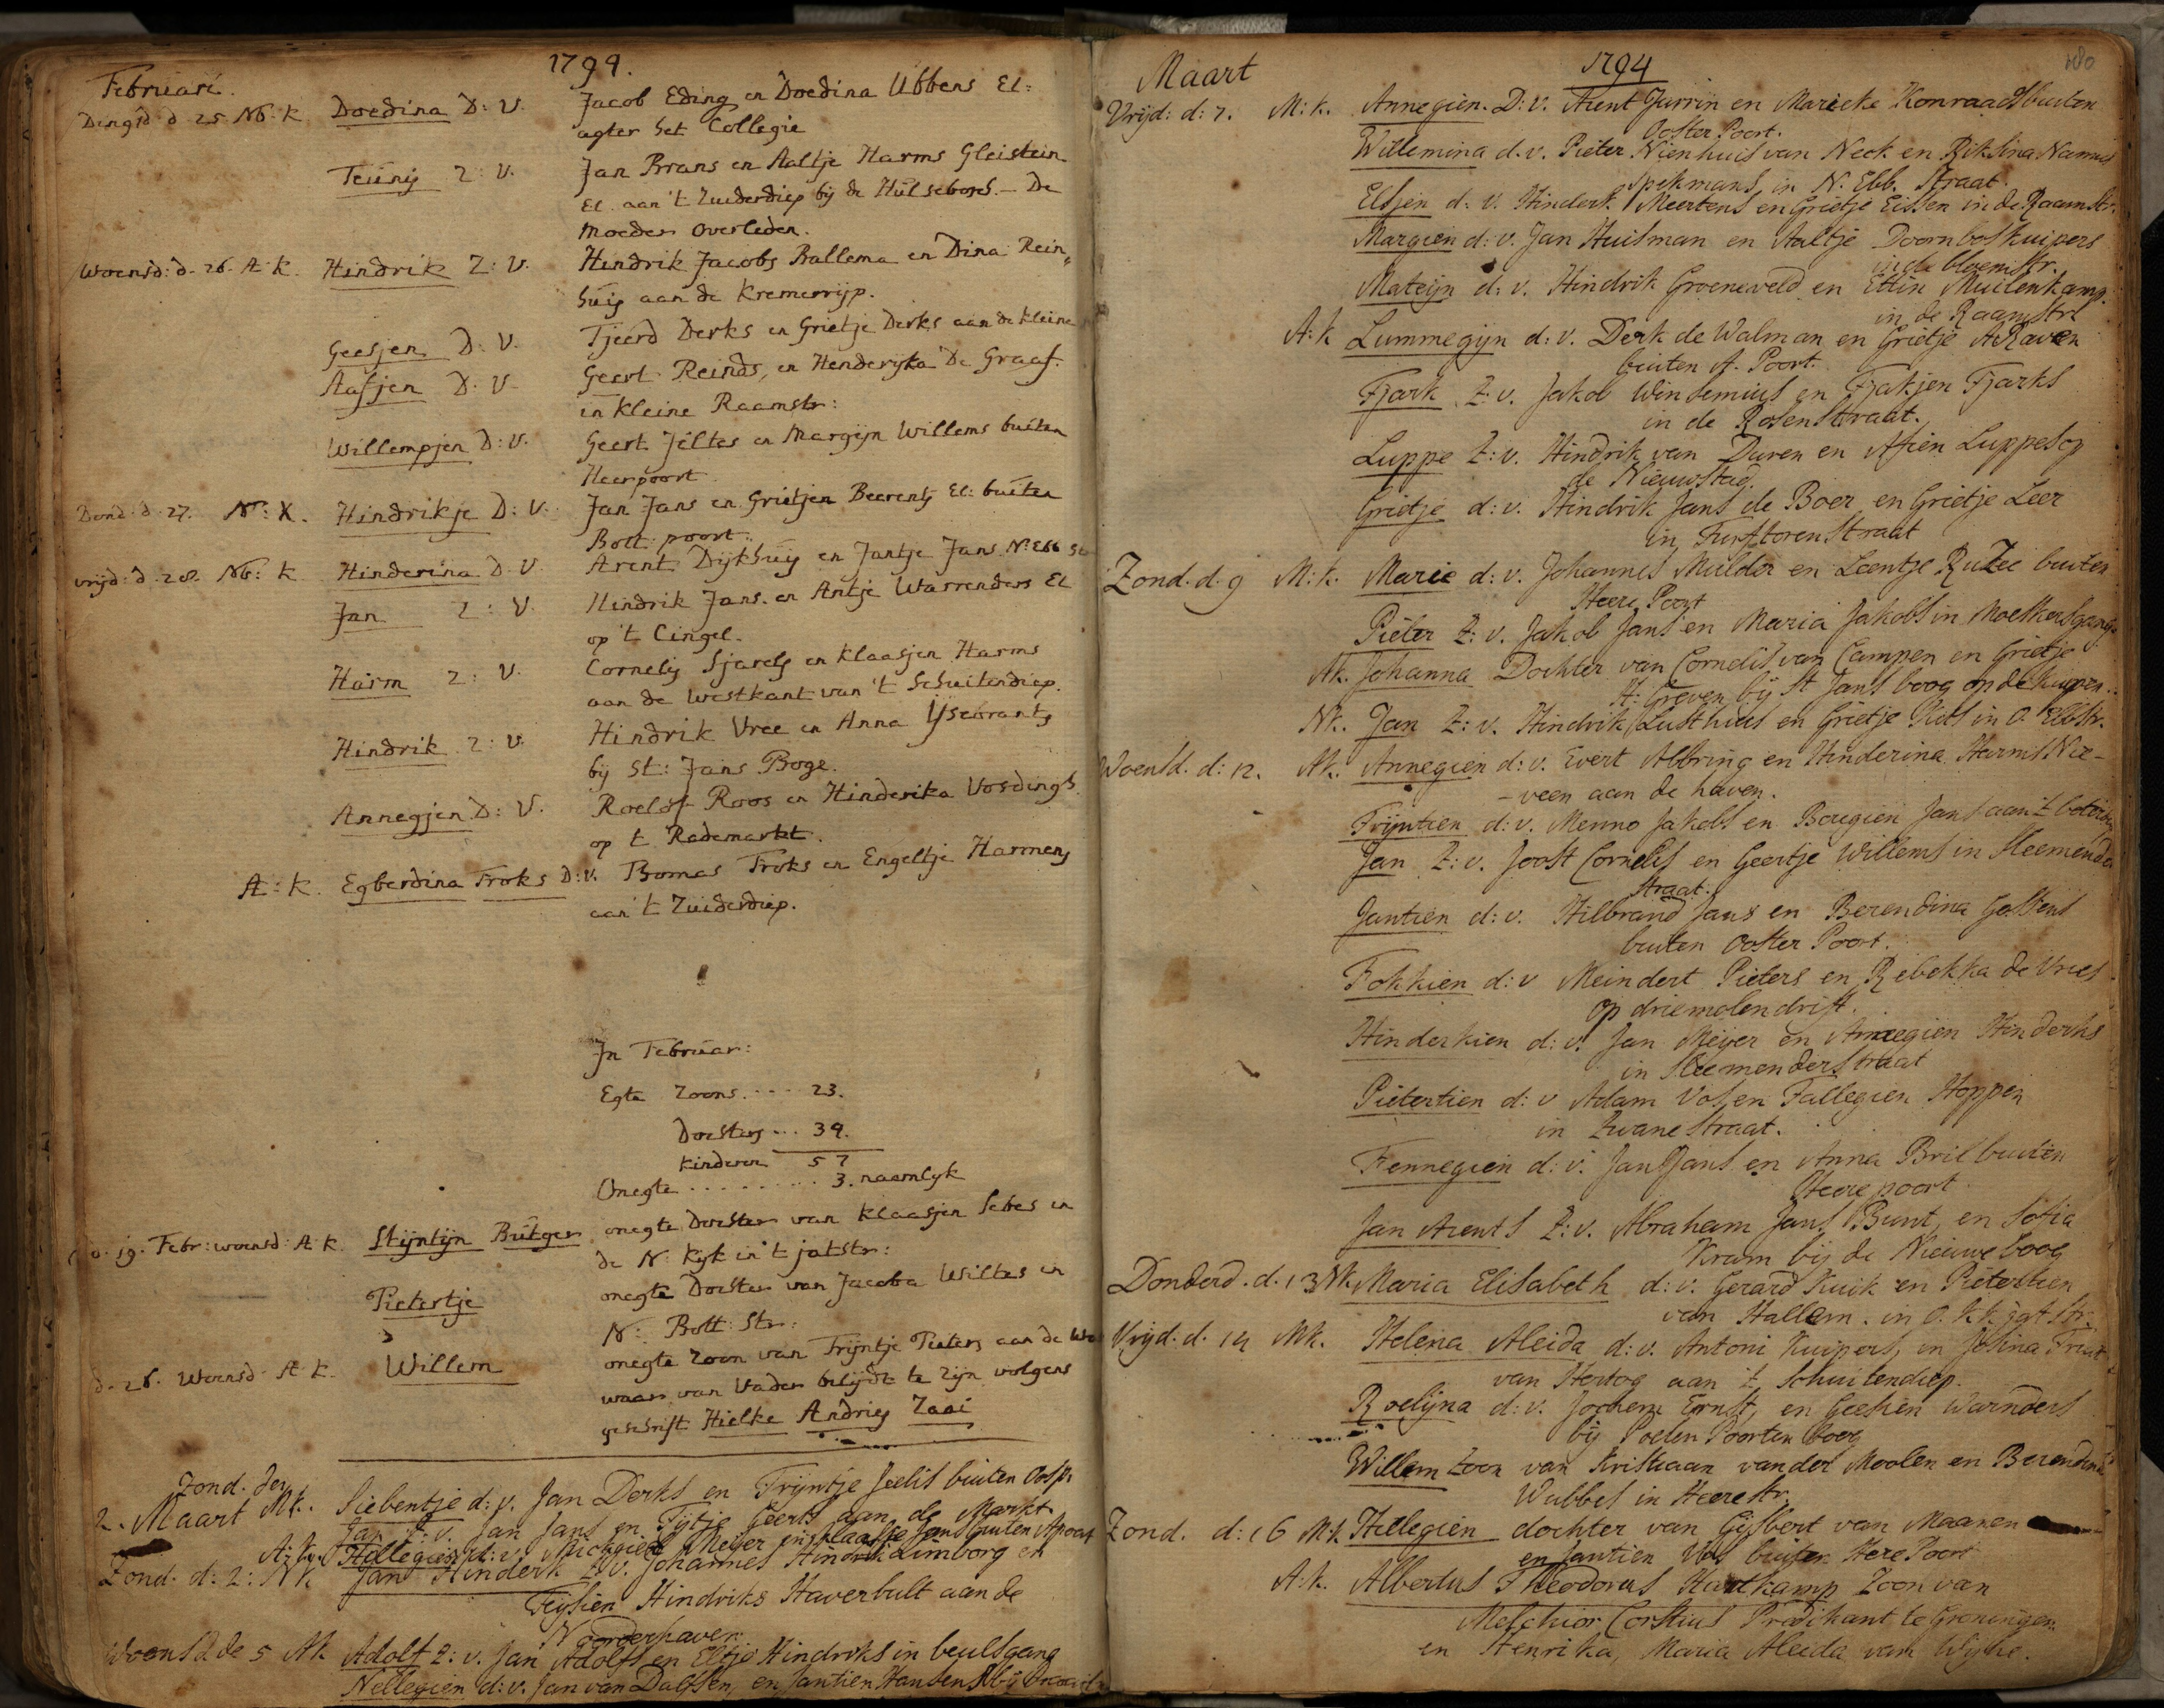 Februari. 1794.
Dingsd d. 25. NB. K Doedina D: V. Jacob Eding en Doedina Ubbens El:
agter het Collegie
Teunis Z: V. Jan Brans en Aaltje Harms Gleistein
El. aan 't Zuiderdiep bij de Hulsebosch. De
Moeder overleden.
Woensd: d. 26. A: K. Hindrik Z: V. Hindrik Jacobs Ballema en Dina Rein„
huis aan de Kremerrijp.
Geesjen D: V. Tjeerd Derks en Grietje Derks aan de kleine
Aafjen D. V. Geert Reinds, en Henderyka De Graaf.
in kleine Raamstr:
Willempjen D: V. Geert Jeltes en Margijn Willems buiten
Heerpoort
Dond. d. 27. N: K. Hindrikje D: V. Jan Jans en Grietjen Beerents El: buiten
Bott: poort.
vrijd: d. 28. NB: K Hinderina D. V. Arent Dijkhuis en Jantje Jans. N: Ebb St
Jan Z: V. Hindrik Jans. en Antje Warrenders El
op 't Cingel.
Harm Z: V. Cornelis Sjarels en Klaasjen Harms
aan de westkant van 't Schuitendiep.
Hindrik Z: V. Hindrik Vree en Anna Ysebrants
bij St: Jans Boge.
Annegjen D: V. Roelof Roos en Hinderika Vosdingh
op t Rademarkt.
A: K. Egberdina Troks D: V. Thomas Troks en Engeltje Harmens
aan 't Zuiderdiep.
In Februar:
Egte Zoons .... 23.
Dochters ... 34.
Kinderen 57
Onegte ......... 3. naamlyk
d. 19. Febr: woensd: A K. Stijntijn Rutger onegte Dochter van Klaasjen Sebes in
de N: Kyk in 't jatstr:
Pietertje onegte Dochter van Jacoba Wiltes in
N: Bott: Str:
d. 26. Woensd. A K. Willem onegte Zoon van Trijntje Pieters aan de
waar van Vader belijdt te zijn volgens
geschrift Hielke Andries Zaai
Zond. den
2. Maart Mk. Siebentje d: v. Jan Derks en Trijntje Jeelis buiten Oostp.
Jan Z: v. Jan Jans en Tijtje Geerts aan de Markt
A: k. Hillegien d: v. Michgiel Meijer en Klaaske Jans buiten Apoort
Zond. d: 2: Nk Jan Hinderk Z. v. Johannes Hindrik Limborg en
Teijsien Hindriks Haverbult aan de
Noorderhaven.
Woensd de 5 Ak Adolf Z: v. Jan Adolfs en Eltje Hindriks in beulsgang
Nellegien d: v. Jan van Dalfsen, en Jantien Hansens bij
Maart 1794
Vrijd: d: 7. M: k. Annegien. D: v. Arent Jurrin en Marieke Konraads buiten
Ooster Poort.
Willemina d. v. Pieter Nienhuis van Neck en Riksina Nannes
Spekmans in N. Ebb. Straat.
Elsjen d: v. Hinderk Meertens en Grietje Eissen in de Raamstr.
Margien d: v. Jan Huisman en Aaltje Doornbos Kuipers
in de bloemstr.
Mateijn d: v. Hindrik Groeneveld en Ettin Muilenkamp.
in de Raamstr
A: k Lummegijn d: v. Derk de Walman en Grietje A Raven
buiten A. Poort.
Tjark Z: v. Jakob Winsemius en Tjakjen Tjarks
in de Rosenstraat.
Luppe Z: v. Hindrik van Duren en Afien Luppes op
de Nieuwstad.
Grietje d: v. Hindrik Jans de Boer en Grietje Leer
in Turftorenstraat
Zond. d. 9 M: k. Marie d: v. Johannes Mulder en Leentje Ruzee buiten
Heere Poort
Pieter Z: v. Jakob Jans en Maria Jakobs in Moeskersgang
Ak. Johanna Dochter van Cornelis van Campen en Grietje
H: Greven bij St Jans boog op de Kuipen..
Nk. Jan Z: v. Hindrik Lusthuis en Grietje Piets in O. Ebbstr.
Woensd. d: 12. Ak. Annegien d: v. Evert Albring en Hinderina Harms Nie-
-veen aan de haven.
Trijntien d: v. Menno Jakobs en Bougien Jans aan 't
Jan Z: v. Joost Cornelis en Geertje Willems in Sleemender
straat.
Jantien d: v. Hilbrand Jans en Berendina Gossens
buiten Ooster Poort.
Fokkien d: v Meindert Pieters en Rebekka de Vries
op driemolendrift.
Hinderkien d: v. Jan Meijer en Annegien Hinderks
in Sleemenderstraat
Pietertien d: v Adam Vos en Fallegien Hoppen
in Zwanestraat.
Fennegien d: v. Jan Jans en Anna Bril buiten
Heere poort.
Jan Arents Z: v. Abraham Jans Bunt, en Sofia
Kram bij de Nieuwe boog
Donderd. d. 13 Nk. Maria Elisabeth d: v. Gerard Kuik en Pietertien
van Hallem. in O. K. k. jatstr.
Vrijd: d. 14 Mk. Helena Aleida d: v. Antoni Kuipers, en Josina
van Hertog aan 't Schuitendiep.
Roelijna d: v. Jochem Ernst, en Geesien Warnders
bij Poelen Poorten boog
Willem Zoon van Kristiaan vander Moolen en Berendina
Wubbes in Heerestr.
Zond. d: 16 Mk. Hillegien dochter van Gijsbert van Maanen
en Jantien Vos buiten Here Poort
A: k. Albertus Theodorus Hartkamp Zoon van
Melchior Corstius Predikant te Groningen
en Henrika, Maria Aleida van Wijhe.